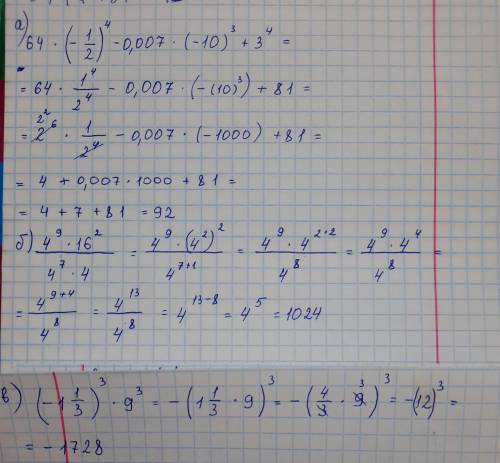 а) 64 · (-1/2)⁴ - 0,007 · (-10)³ + 3⁴ =
= 64 · 1⁴/2⁴ - 0,007 · (-(10)³) + 81 =
= 2⁶ 2² · 1/2⁴ - 0,007 · (-1000) + 81 =
= 4 + 0,007 · 1000 + 81 =
= 4 + 7 + 81 = 92
б) 4⁹ · 16² / 4⁷ · 4 = 4⁹ · (4²)² / 4⁷⁺¹ = 4⁹ · 4²·² / 4⁸ = 4⁹ · 4⁴ / 4⁸ =
= 4⁹⁺⁴ / 4⁸ = 4¹³ / 4⁸ = 4¹³⁻⁸ = 4⁵ = 1024
в) (-1 1/3)³ · 9³ = -(1 1/3 · 9)³ = -(4/3 · 9 3)³ = -(12)³ =
= - 1728